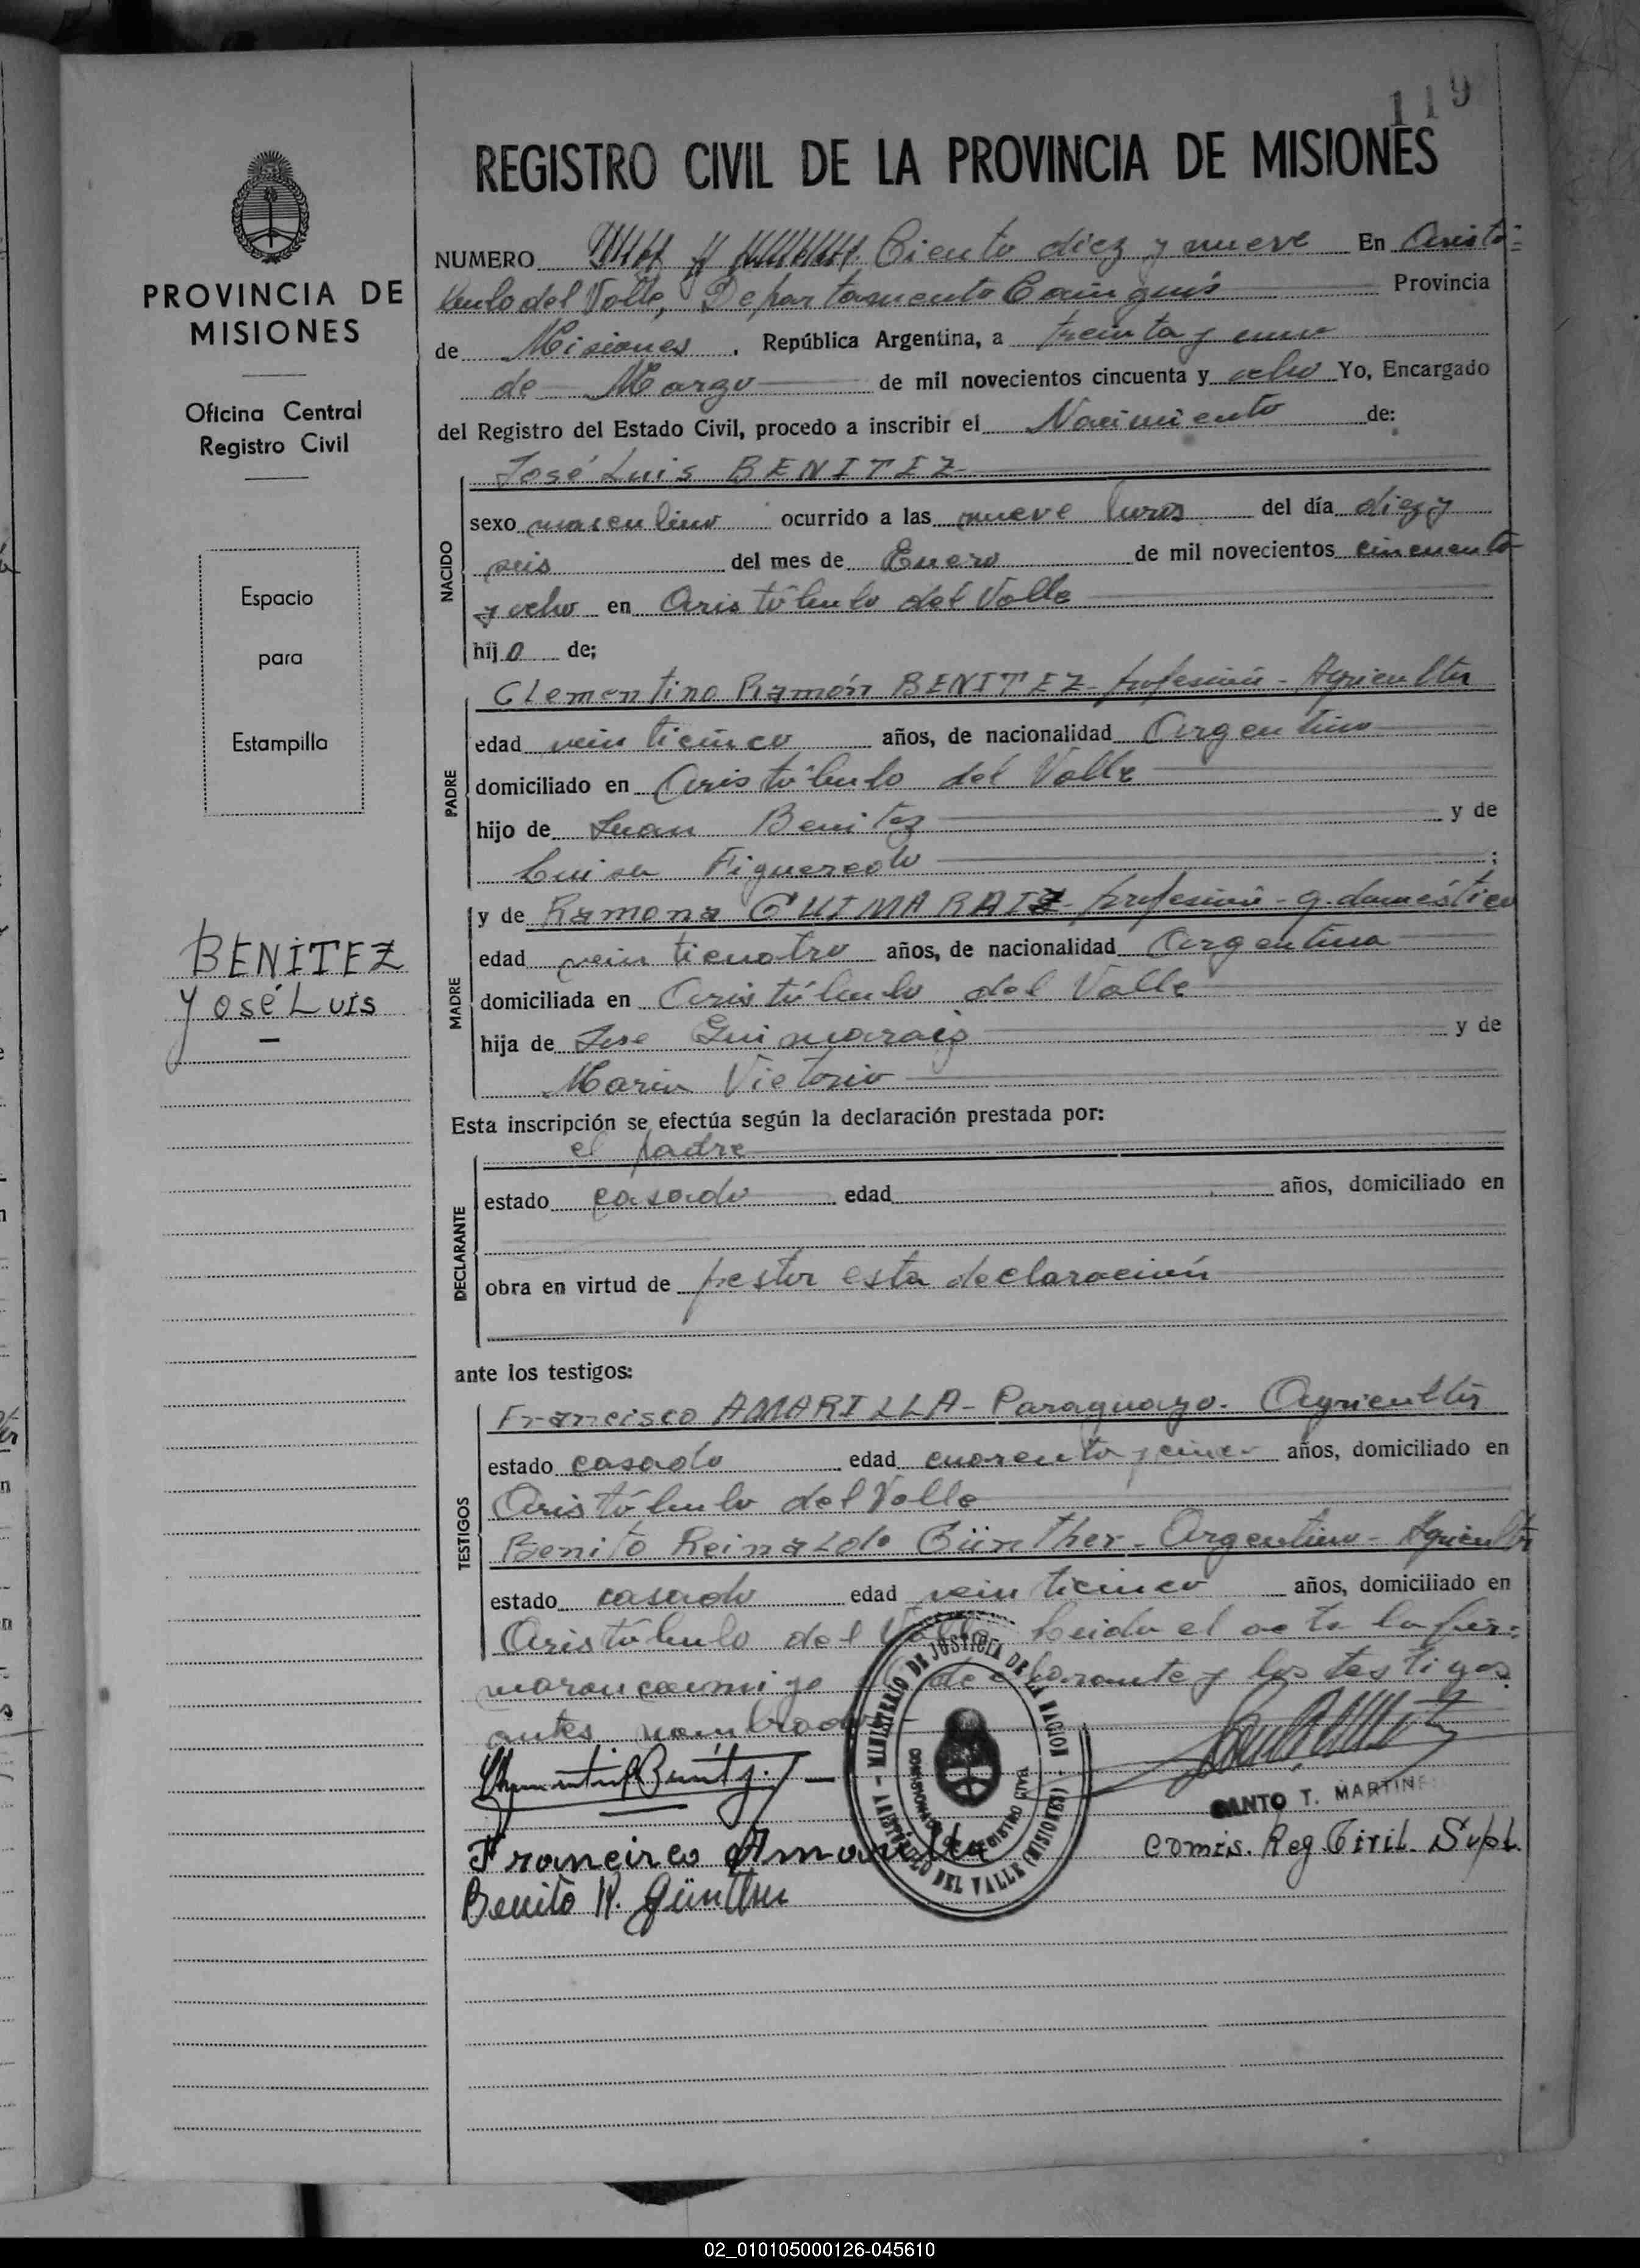 119
REGISTRO CIVIL DE LA PROVINCIA DE MISIONES
PROVINCIA DE
MISIONES
Oficina Central
Registro Civil
Espacio
para
Estampilla
BENITEZ
José Luis
NUMERO Ciento diez y nueve En Aristó=
bulo del Valle, Departamento Cainguás Provincia
de Misiones, República Argentina, a treinta y uno
de Marzo de mil novecientos cincuenta y ocho Yo, Encargado
del Registro del Estado Civil, procedo a inscribir el Nacimiento de:
José Luis BENITEZ
NACIDO
sexo masculino ocurrido a las nueve horas del día diez y
seis del mes de Enero de mil novecientos cincuenta
y ocho en Aristóbulo del Valle
hijo de;
PADRE
Clementino Ramón BENITEZ - profesión - Agricultor
edad veinticinco años, de nacionalidad Argentino
domiciliado en Aristóbulo del Valle
hijo de Juan Benitez y de
Luisa Figueredo;
MADRE
y de Ramona GUIMARAIZ - profesión - q. doméstico
edad veinticuatro años, de nacionalidad Argentina
domiciliada en Aristóbulo del Valle
hija de Jose Guimaraiz y de
Maria Victorio
Esta inscripción se efectúa según la declaración prestada por:
DECLARANTE
el padre
estado casado edad años, domiciliado en
obra en virtud de prestar esta declaración
ante los testigos:
TESTIGOS
Francisco AMARILLA - Paraguayo. Agricultor
estado casado edad cuarenta y cinco años, domiciliado en
Aristóbulo del Valle
Benito Reinaldo Günther - Argentino - Agricultor
estado casado edad veinticinco años, domiciliado en
Aristóbulo del Valle Leida el acta la fir=
maron conmigo declarante y los testigos
antes nombrados
MINISTERIO DE JUSTICIA DE LA NACION
ARISTÓBULO DEL VALLE (MISIONES)
REGISTRO CIVIL
SANTO T. MARTINE
Francisco Amarilla
Comis. Reg. Civil. Supl.
Benito R. Günther
02_010105000126-045610